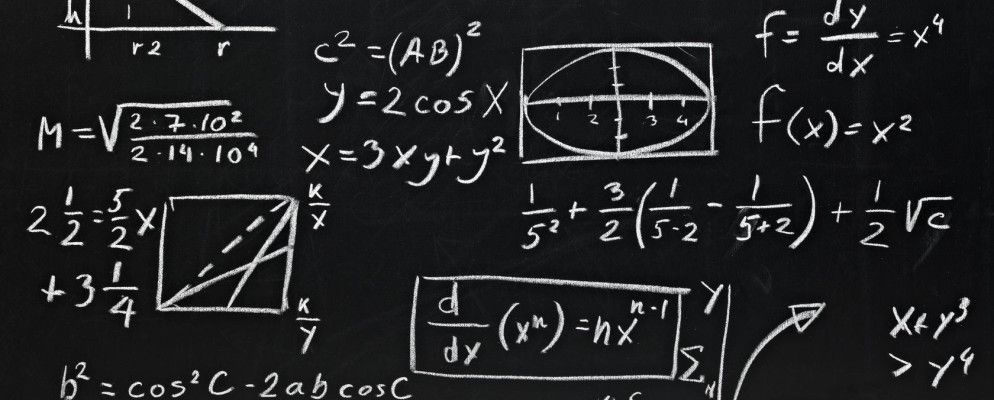 h
1
r2 r
c² = (AB)²
y = 2 cos X
x = 3xy + y²
1 2 3 4
f = dy/dx = x⁴
f(x) = x²
M = √(2·7·10²/2·14·10⁴)
2 1/2 = 5/2 X
+ 3 1/4
K/X
K/Y
1/5² + 3/2 (1/5-2 - 1/5+2) + 1/2 √c
d/dx (xⁿ) = nxⁿ⁻¹
Y
Σ
X + y³
> y⁴
b² = cos² C - 2ab cos C